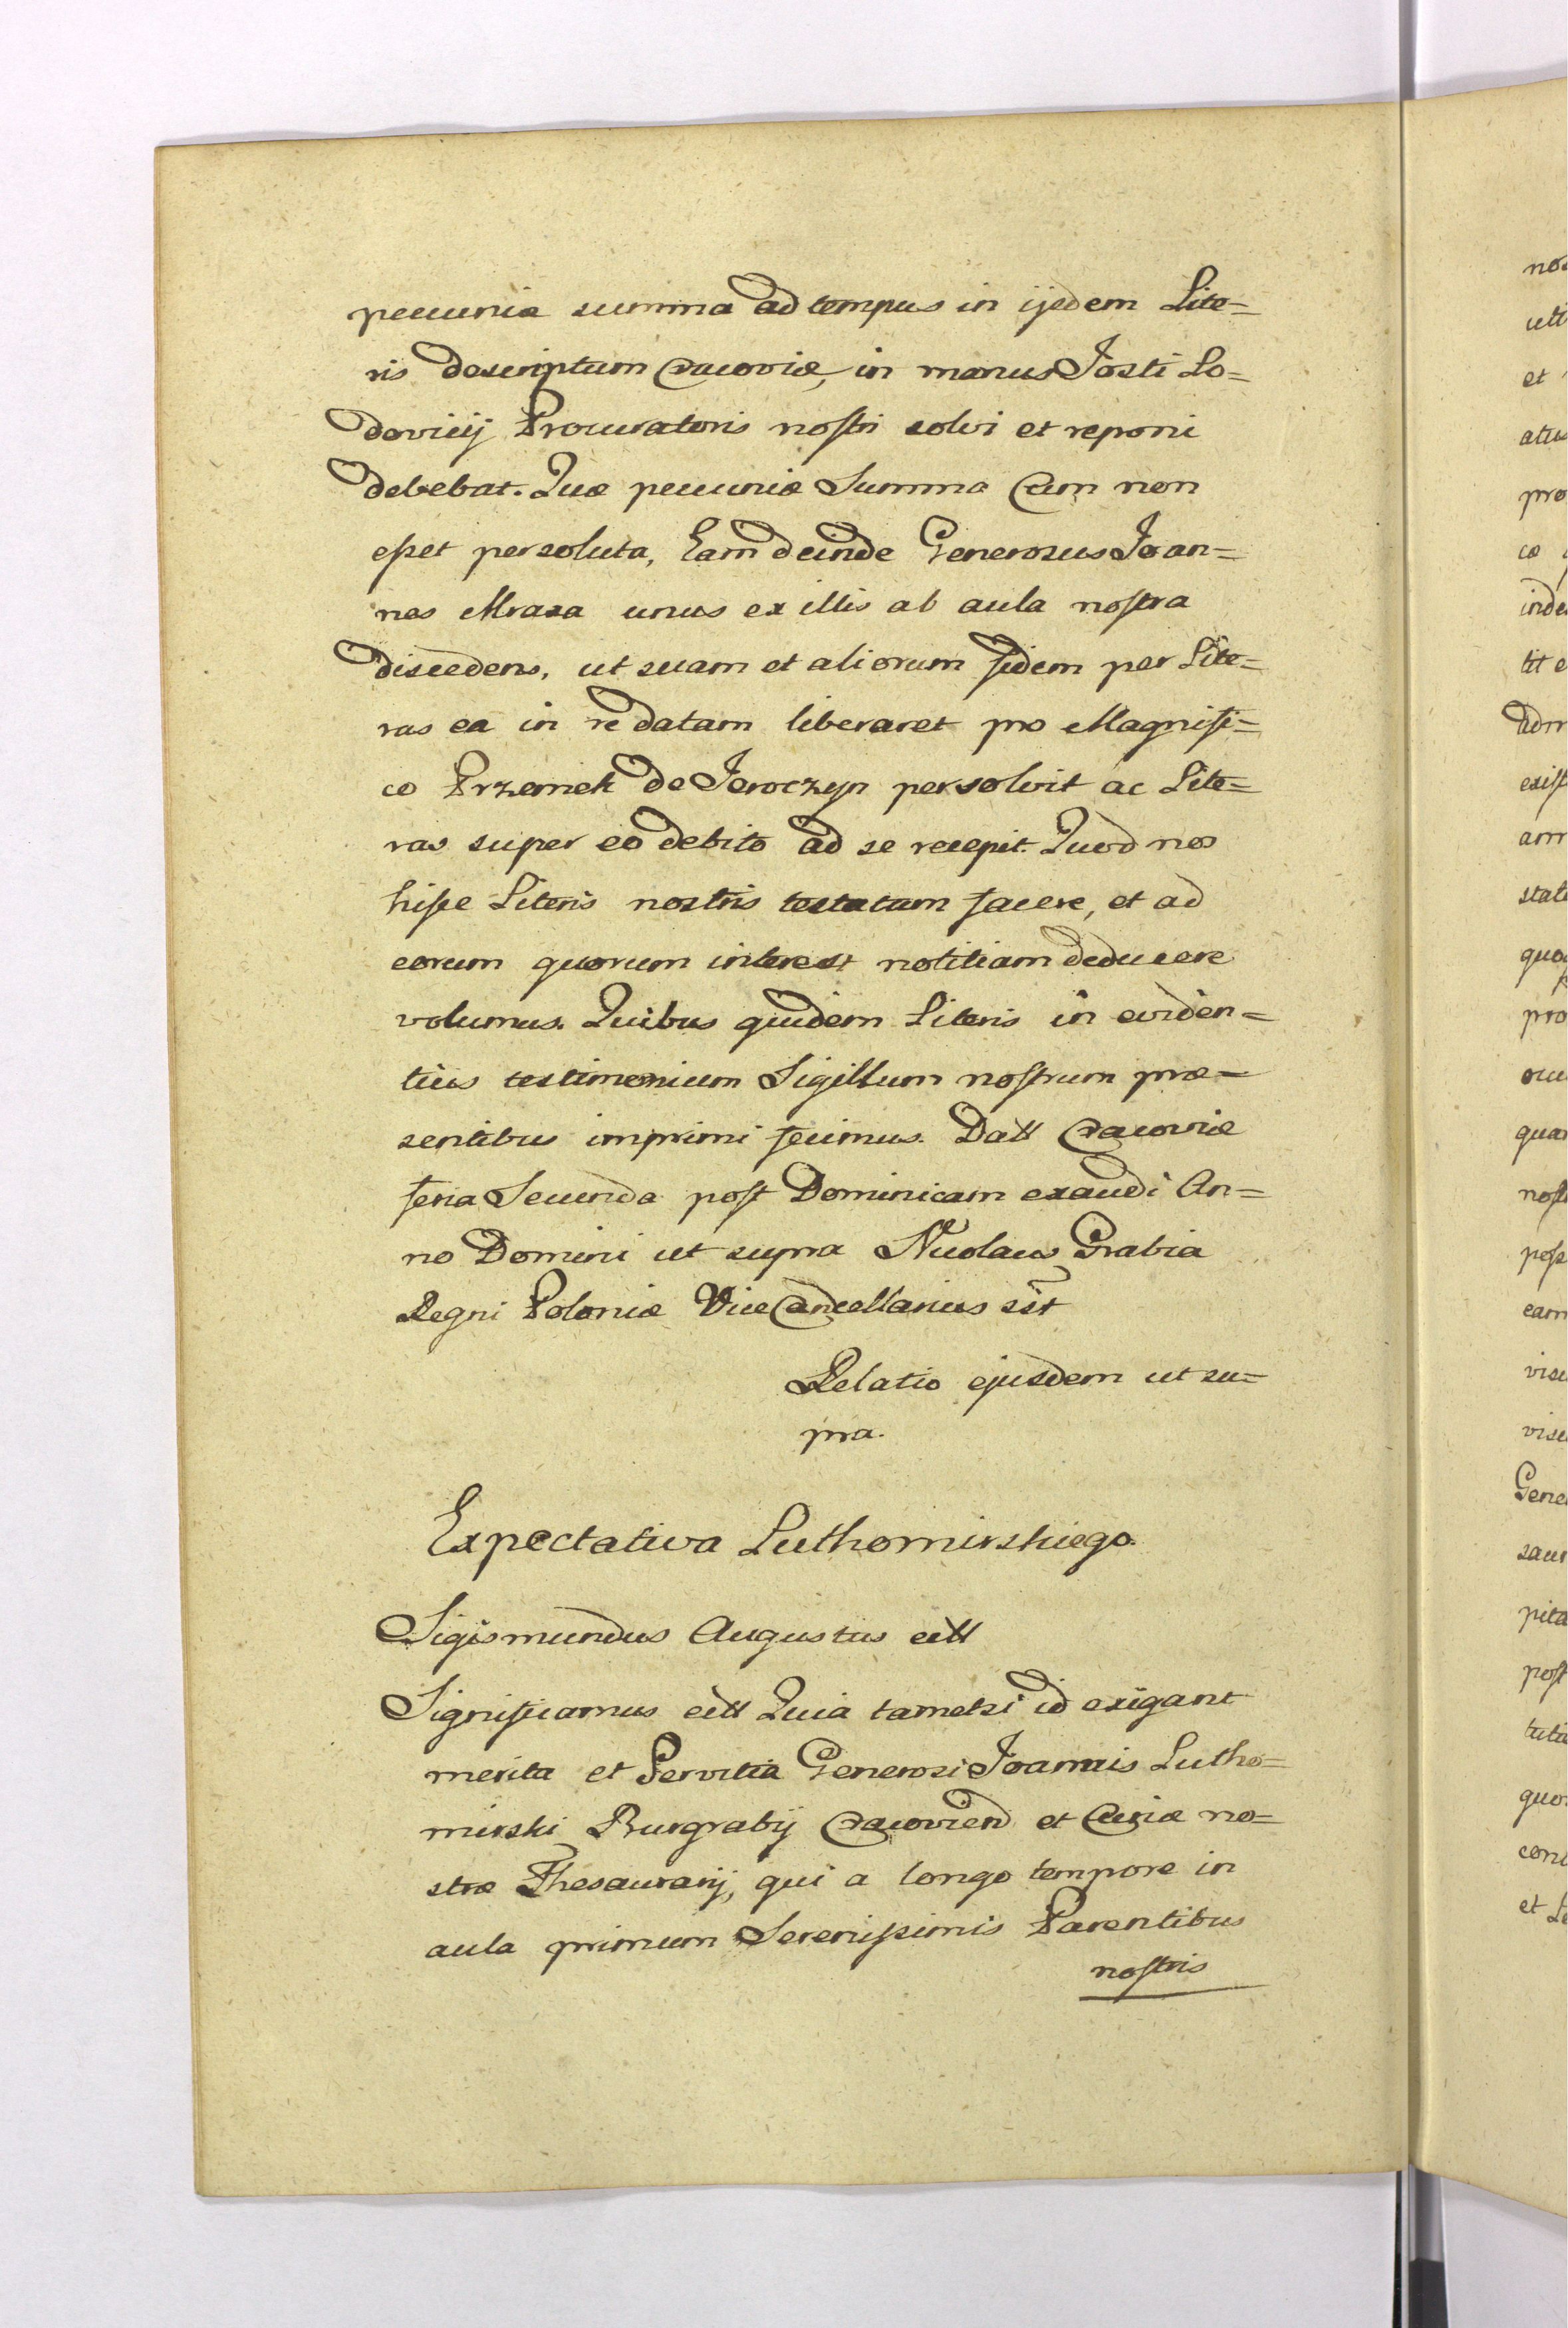 pecunia summa ad tempus in ijsdem Lite=
ris descriptum Cracoviæ, in manus Josti Lo=
dovicij Procuratoris nostri solvi et reponi
debebat. Quæ pecuniæ Summa Cum non
esset persoluta, Eam deinde Generosus Joan=
nes Mraxa unus ex illis ab aula nostra
discedens, ut suam et aliorum fidem per Lite=
ras ea in re datam liberaret pro Magnifi=
co Przemek de Jeroczyn persolvit ac Lite=
ras super eo debito ad se recepit. Quod nos
hisce Literis nostris testatum facere, et ad
eorum quorum interest notitiam deducere
volumus. Quibus quidem Literis in eviden=
tius testimonium Sigillum nostrum præ=
sentibus imprimi fecimus. Datt Cracoviæ
feria Secunda post Dominicam exaudi An=
no Domini ut supra Nicolaus Grabia
Regni Poloniæ ViceCancellarius sst
Relatio ejusdem ut su=
pra.
Expectativa Luthomirskiego.
Sigismundus Augustus ett
Significamus ett Quia tametsi id exigant
merita et Servitia Generosi Joannis Lutho=
mirski Burgrabij Cracovien et Curiæ no=
stræ Thesaurarij, qui a longo tempore in
aula primum Serenissimis Parentibus
nostris
nos
uti
et
atus
pro
co
inde
tit e
adm
exist
am
stat
quo
pro
ocu
quar
nost
posse
eam
vice
vise
Gene
saur
pita
post
tuti
quo
cont
et Se